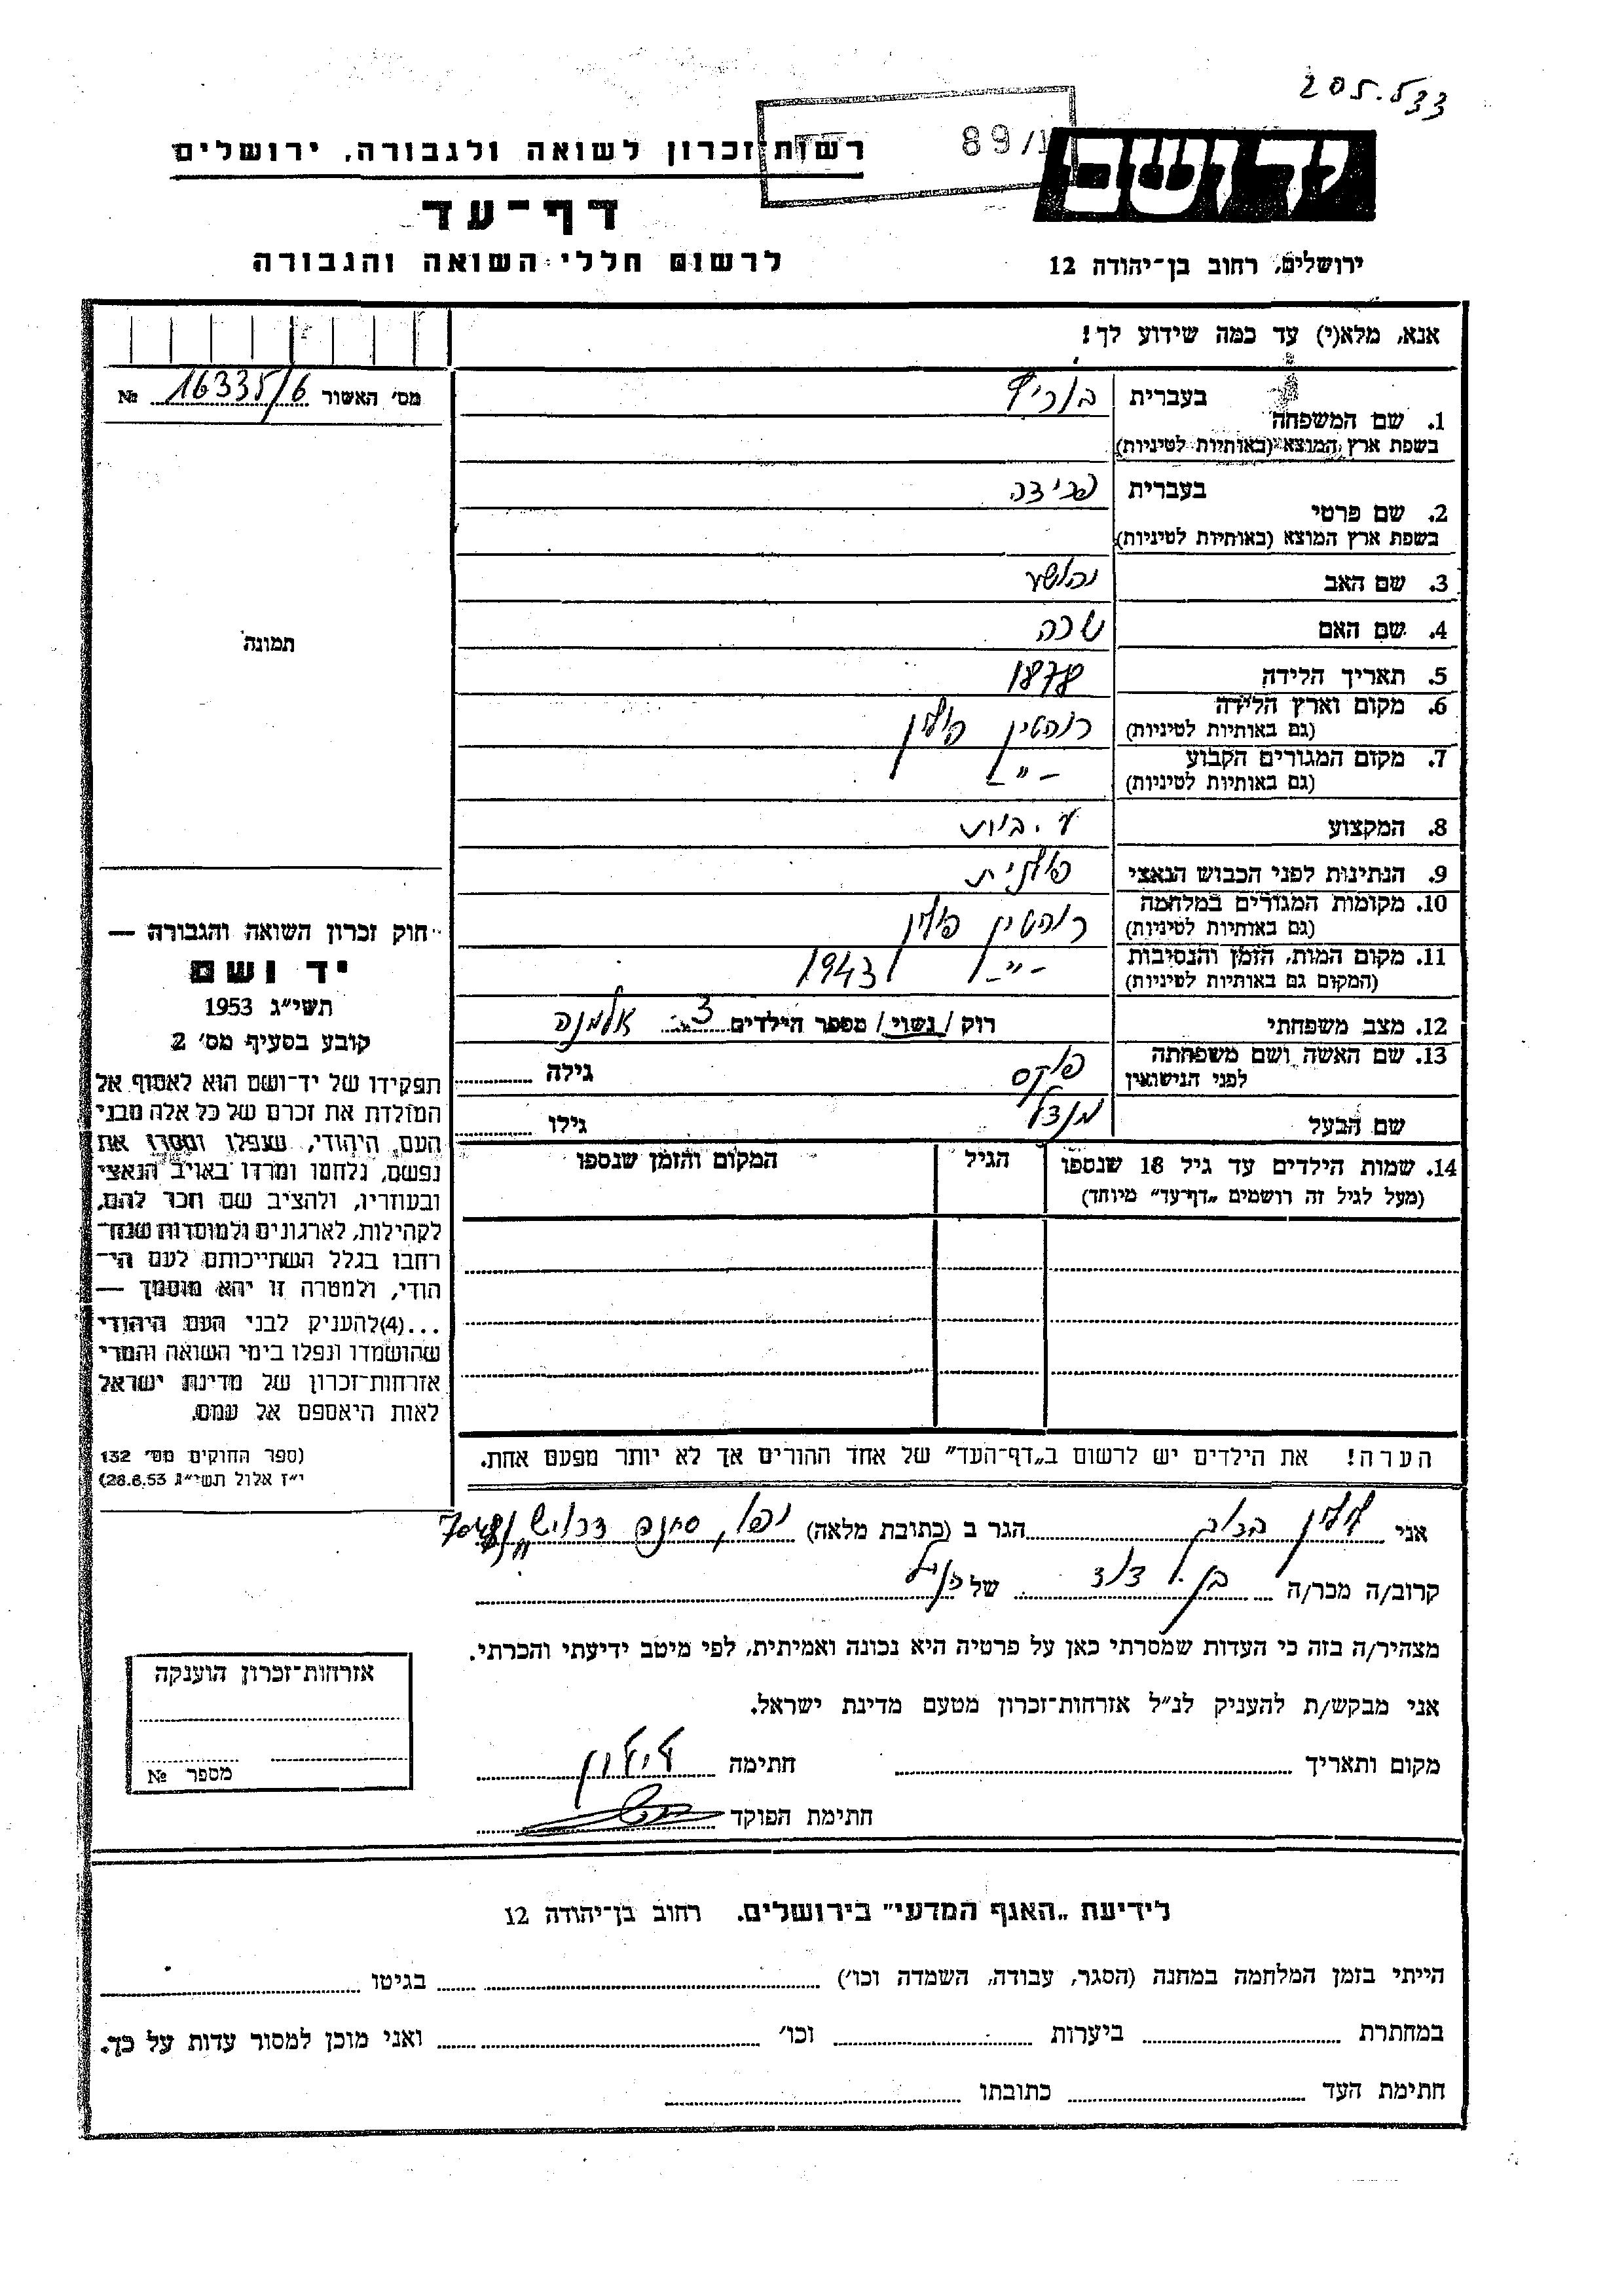 205.533
89/
יד ושם
רשות זכרון לשואה ולגבורה, ירושלים
דף-עד
לרשום חללי השואה והגבורה
ירושלים, רחוב בן-יהודה 12
אנא, מלא(י) עד כמה שידוע לך!
מס' האשור 16335/6 №
1. שם המשפחה בעברית
בשפת ארץ המוצא (באותיות לטיניות)
2. שם פרטי בעברית פרידה
בשפת ארץ המוצא (באותיות לטיניות)
3. שם האב יהושע
4. שם האם שרה
5. תאריך הלידה 1878
6. מקום וארץ הלידה רוהטין פולין
(גם באותיות לטיניות)
7. מקום המגורים הקבוע -"-
(גם באותיות לטיניות)
8. המקצוע ע. בית
9. הנתינות לפני הכבוש הנאצי פולנית
10. מקומות המגורים במלחמה רוהטין פולין
(גם באותיות לטיניות)
11. מקום המות, הזמן והנסיבות -"- 1943
(המקום גם באותיות לטיניות)
12. מצב משפחתי רוק / נשוי / מספר הילדים 3 אלמנה
13. שם האשה ושם משפחתה פוקס גילה
לפני הנישואין
שם הבעל מנדל גילו
14. שמות הילדים עד גיל 18 שנספו הגיל המקום והזמן שנספו
(מעל לגיל זה רושמים "דף-עד" מיוחד)
הערה! את הילדים יש לרשום ב"דף-העד" של אחד ההורים אך לא יותר מפעם אחת.
תמונה
חוק זכרון השואה והגבורה —
יד ושם
תשי"ג 1953
קובע בסעיף מס' 2
תפקידו של יד-ושם הוא לאסוף אל
המולדת את זכרם של כל אלה מבני
העם היהודי, שנפלו ומסרו את
נפשם, נלחמו ומרדו באויב הנאצי
ובעוזריו, ולהציב שם וזכר להם,
לקהילות, לארגונים ולמוסדות שנח-
רבו בגלל השתייכותם לעם הי-
הודי, ולמטרה זו יהא מוסמך —
...(4)להעניק לבני העם היהודי
שהושמדו ונפלו בימי השואה והמרי
אזרחות-זכרון של מדינת ישראל
לאות היאספם אל עמם.
(ספר החוקים מס' 132
י"ז אלול תשי"ג 28.8.53)
אני הגר ב (כתובת מלאה) יפו,
קרוב/ה מכר/ה בן דוד של
מצהיר/ה בזה כי העדות שמסרתי כאן על פרטיה היא נכונה ואמיתית, לפי מיטב ידיעתי והכרתי.
אני מבקש/ת להעניק לנ"ל אזרחות-זכרון מטעם מדינת ישראל.
מקום ותאריך חתימה
חתימת הפוקד
אזרחות-זכרון הוענקה
מספר №
לידיעת "האגף המדעי" בירושלים. רחוב בן-יהודה 12
הייתי בזמן המלחמה במחנה (הסגר, עבודה, השמדה וכו') בגיטו
במחתרת ביערות וכו' ואני מוכן למסור עדות על כך.
חתימת העד כתובתו